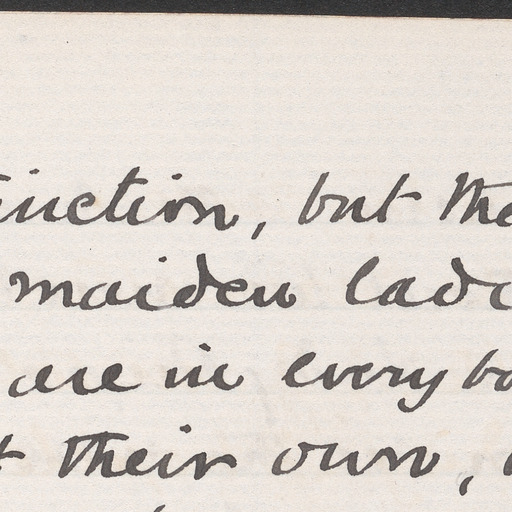 tinction, but the
maiden ladi
are in everybo
t their own,